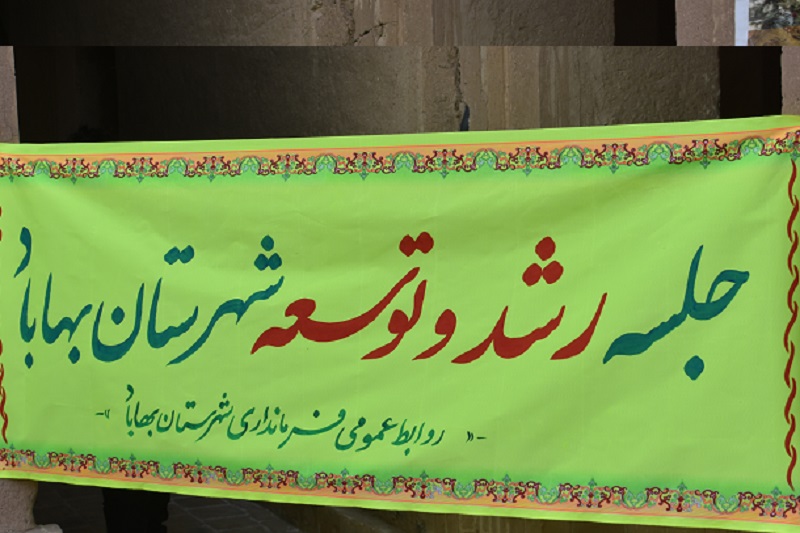 جلسه رشد و توسعه شهرستان بهاباد
-« روابط عمومی فرمانداری شهرستان بهاباد »-